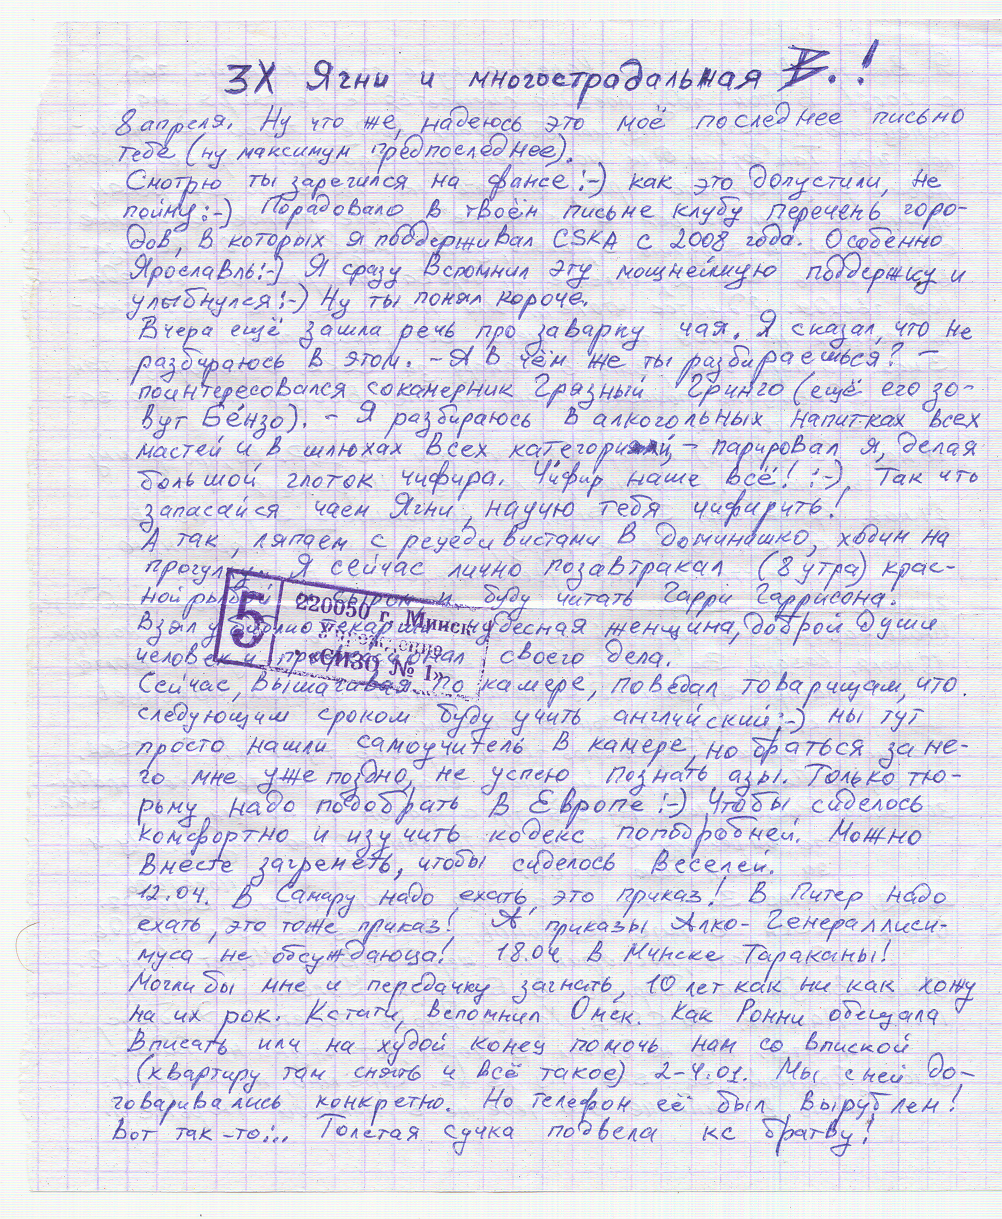 ЗХ Ягни и многострадальная В.!
8 апреля. Ну что же, надеюсь это моё последнее письмо
тебе (ну максимум предпоследнее).
Смотрю ты зарегился на фансе:-) как это допустили, не
пойму:-) Порадовало в твоём письме клубу перечень горо-
дов, в которых я поддерживал CSKA с 2008 года. Особенно
Ярославль:-) Я сразу вспомнил эту мощнейшую поддержку и
улыбнулся:-) Ну ты понял короче.
Вчера ещё зашла речь про заварку чая. Я сказал, что не
разбираюсь в этом. - А в чём же ты разбираешься? -
поинтересовался сокамерник Грязный Гринго (ещё его зо-
вут Бе́нзо). - Я разбираюсь в алкогольных напитках всех
мастей и в шлюхах всех категорий, - парировал я, делая
большой глоток чифира. Чифир наше всё! :-). Так что
запасайся чаем Ягни, научу тебя чифирить!
А так, ляпаем с рецедивистами в доминишко, ходим на
прогулки. Я сейчас лично позавтракал (8 утра) крас-
ной рыбой с сыром и буду читать Гарри Гаррисона.
Взял у библиотекарши - чудесная женщина, доброй души
человек и профессионал своего дела.
Сейчас, вышагивая по камере, поведал товарищам, что
следующим сроком буду учить английский:-) мы тут
просто нашли самоучитель в камере, но браться за не-
го мне уже поздно, не успею познать азы. Только тю-
рьму надо подобрать в Европе:-) Чтобы сиделось
комфортно и изучить кодекс поподробней. Можно
вместе загреметь, чтобы сиделось веселей.
12.04. В Самару надо ехать, это приказ! В Питер надо
ехать, это тоже приказ! А приказы Алко-Генераллиси-
муса не обсуждаюца! 18.04 в Минске Тараканы!
Могли бы мне и передачку загнать, 10 лет как ни как хожу
на их рок. Кстати, вспомнил Омск. Как Ронни обещала
вписать или на худой конец помочь нам со впиской
(квартиру там снять и всё такое) 2-4.01. Мы с ней до-
говаривались конкретно. Но телефон её был вырублен!
Вот так-то... Толстая сучка подвела кс братву!
5
220050 г. Минск
Учреждение
«СИЗО № 1»